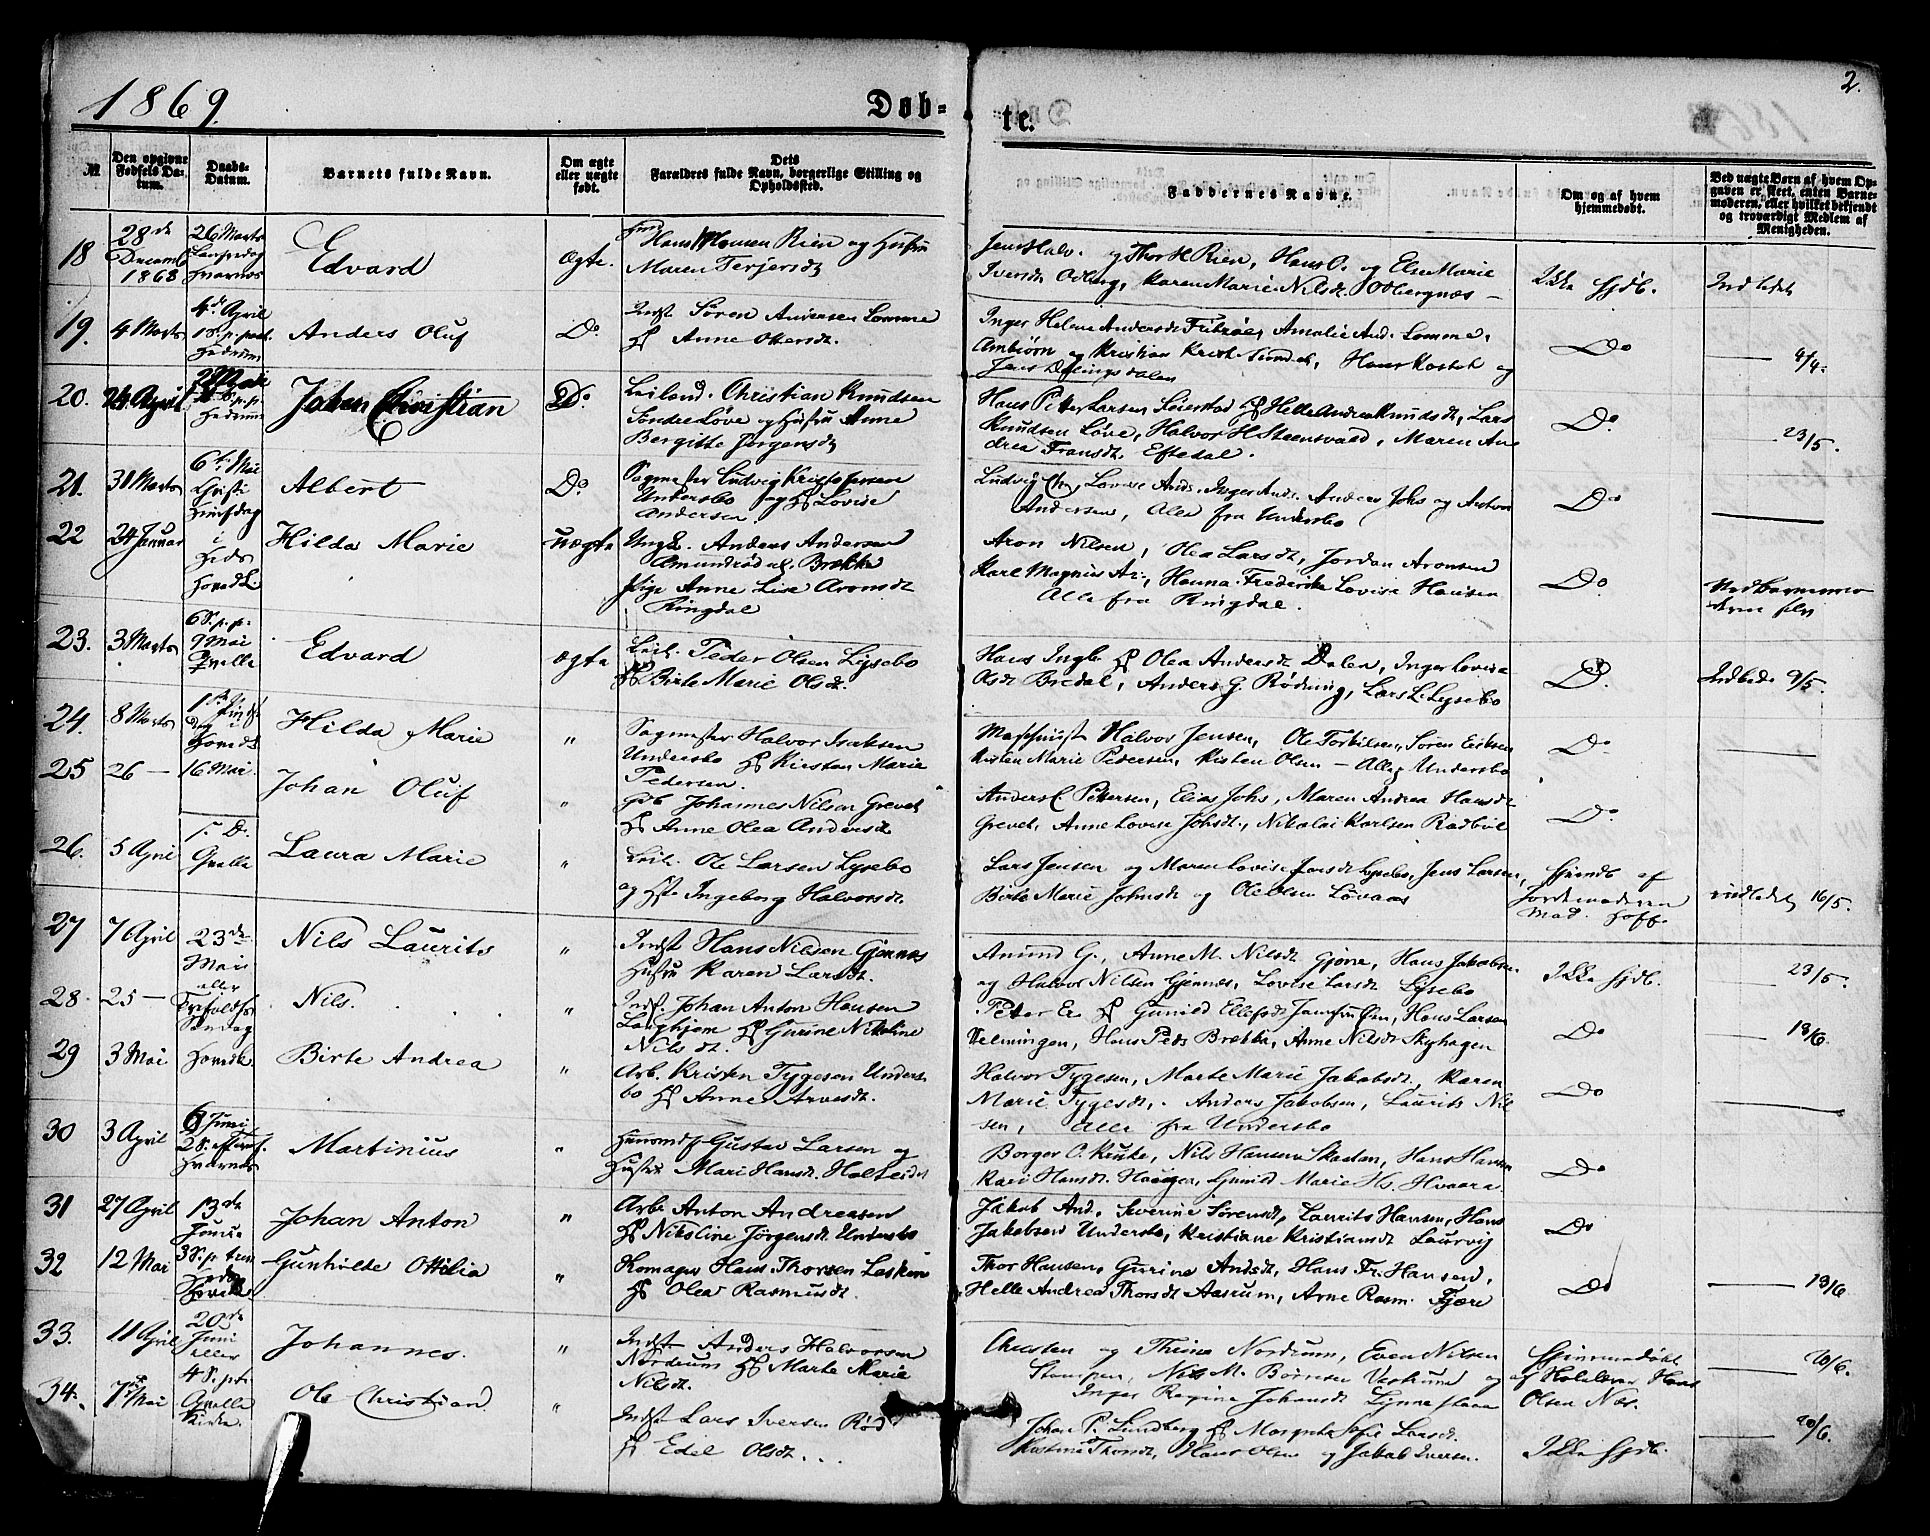 1869.
Døb=
te.
2.
№
Den opgivne Fødsels Datum.
Daabs-Datum.
Barnets fulde Navn.
Om ægte eller uægte født.
Dets Forældres fulde Navn, borgerlige Stilling og Opholdssted.
Faddernes Navne.
Om og af hvem hjemmedøbt.
Ved uægte Børn af hvem Opgaven er skeet, enten Barnemoderen, eller hvilket bekjendt og troværdigt Medlem af Menigheden.
18 28de Decemb 1868
26 Marts Langfredag Hvarnes
Edvard
ægte.
Hans Hansen Rien og Hustru
Maren Terjersdt
Jens Halv. og Thor H. Rien, Hans O. og Else Marie
Iversdt Odberg, Karen Marie Nilsdt Odbergnæs —
Ikke hjdb.
Indledet
19. 4 Marts
4de April
Hedrum
Anders Oluf
Do
Indst Søren Andersen Lomme
Anne Ottersdt.
Inger Helene Andersdt Fritzøe, Amalie And. Lomme,
Ambiørn og Kristian Krist. Hans Kostet og
Jens Dølingsdalen
Do
— 4/4.
20. 24 April
Hedrum
Johan Christian
Do
Leilend. Christian Knudsen
Søndre Løve og Hustru Anne
Bergitte Jørgensdt
Hans Petter Larsen Seierstad Helle Andrea Knudsdt, Lars
Knudsen Løve, Halvor H. Steensvald, Maren An
drea Fransdt. Eftedal.
Do
— 23/5.
21. 31 Marts
6te Mai Christi Himfdag
Albert
Do
Sagmester Ludvig Kristofersen
Undersbo og Lovise
Andersen.
Ludvig Lovise Ands. Inger Ands. Anders Johs og Anton
Andersen, Alle fra Undersbo
Do
22 24 Januar
i Heds Hovedk.
Hilda Marie
uægte
Ungk. Anders Andersen
Amundrød Brekke
Pige Anne Lise Aronsdt
Ringdal
Aron Nilsen, Olea Larsdt, Jordan Aronsen
Karl Magnus Ar., Hanna Frederike Lovise Hansen
Alle fra Ringdal.
Do
Ved Barnemo
deren selv
23. 3 Marts
6 S. p. p. 9 Mai Qvelle
Edvard
ægte
Leil. Peder Olsen Lysebo
Birte Marie Olsdt.
Hans Ingb. Olea Andersdt Dalen, Inger Lovise
Olsdt Bredal, Anders G. Rødning, Lars L. Lysebo
Do.
Indlede 9/5.
24. 8 Marts
1ste Pindsedag i Hovedk
Hilda Marie
"
Sagmester Halvor Isaksen
Undersbo Kirsten Marie
Pedersen.
Halvor Jensen, Ole Torkilsen, Søren Eriksen
Kisten Marie Pedersen, Kisten Olsen — Alle Undersbo
Do
25 26 —
16 Mai.
Johan Oluf
"
Gdb Johannes Nilsen Grevet
Anne Olea Andersdt
Anders C. Pettersen, Elias Johs, Maren Andrea Hansdt
Grevet, Anne Lovise Johsdt, Nikolai Karlsen Rødbøl
Do.
26. 5 April
Qvelle
Laura Marie
"
Leil. Ole Larsen Lysebo
og Hst Ingeborg Halvorsdt.
Lars Jensen og Maren Lovise Larsdt Lysebo, Jens Larsen,
Birte Marie Johnsdt og Ole Olsen Løvaas
Hjemdb af
Jordemoderen
Mad. Hoff.
indledet 16/5.
27 7 April
23de Mai eller
Nils Laurits
"
Indst Hans Nilsen Gjønnes
Hustru Karen Larsdt.
Amund G., Anne M. Nilsdt Gjøne, Hans Jakobsen
og Halvor Nilsen Gjønnes, Lovise Larsdt Lysebo
Ikke hjdb.
— 23/5.
28. 25 —
Trefoldhs Søndag
Nils.
"
Indst. Johan Anton Hansen
Gurine Nikoline
Nilsdt.
Peter E. Gunild Ellefsdt Hans Larsen
Velmingen, Hans Peds Brekke, Anne Nilsdt Skyhagen
Do
— 13/6.
29 3 Mai
Hovedk.
Birte Andrea
"
Arb. Kristen Tygesen Unders
bo Anne Arvesdt.
Halvor Tygesen, Marte Marie Jakobsdt. Karen
Marie Tygesdt. Anders Jakobsen, Laurits Nil
sen, Alle fra Undersbo
Do
30 3 April
6 Juni Hvarnes
Martinius
"
Husmd Gustav Larsen og
Hustru Mari Hansdt. Holtesletten
Borger O. Kruke, Nils Hansen Skadan, Hans Hansen
Kari Hansdt. Haugen, Gunild Marie Hs. Hvaara
Do
31 27 April
13de Junie
Johan Anton
"
Arb Anton Andreasen
Nikoline Jørgensdt Undersbo
Jakob And., Severine Sørensdt., Laurits Hansen, Hans
Jakobsen Undersbo, Kristiane Kristiansdt Laurvig
Do
32 12 Mai
3 S. p. tren
Gunhilde Ottilia
"
Komager Hans Thorsen
Olea Rasmusdt.
Thor Hansen, Gurine Andsdt, Hans Fr. Hansen,
Helle Andrea Thorsdt Aasrum, Arne Rasm. Fjære
Do
— 13/6.
33. 11 April
20de Juni eller
Johannes.
"
Indst Anders Halvorsen
Nordrum Marte Marie
Nilsdt.
Chresten og Thrine Nordrum, Even Nilsen
Nils M. Børresen Vestrum og
Inger Regine Johansdt
Hjemmedøbt
af Hans
Olsen Næs.
— 20/6.
34. 7de Mai
4 S. p. tr. Qvelle Kirke.
Ole Christian
"
Indst Lars Iversen Rød
Edel Olsdt. . .
Johan P. Lundberg Margrete Sofie Larsdt.
Kistine Thorsdt, Hans Olsen og Jakob Iversen.
Ikke hjdb.
— 20/6.